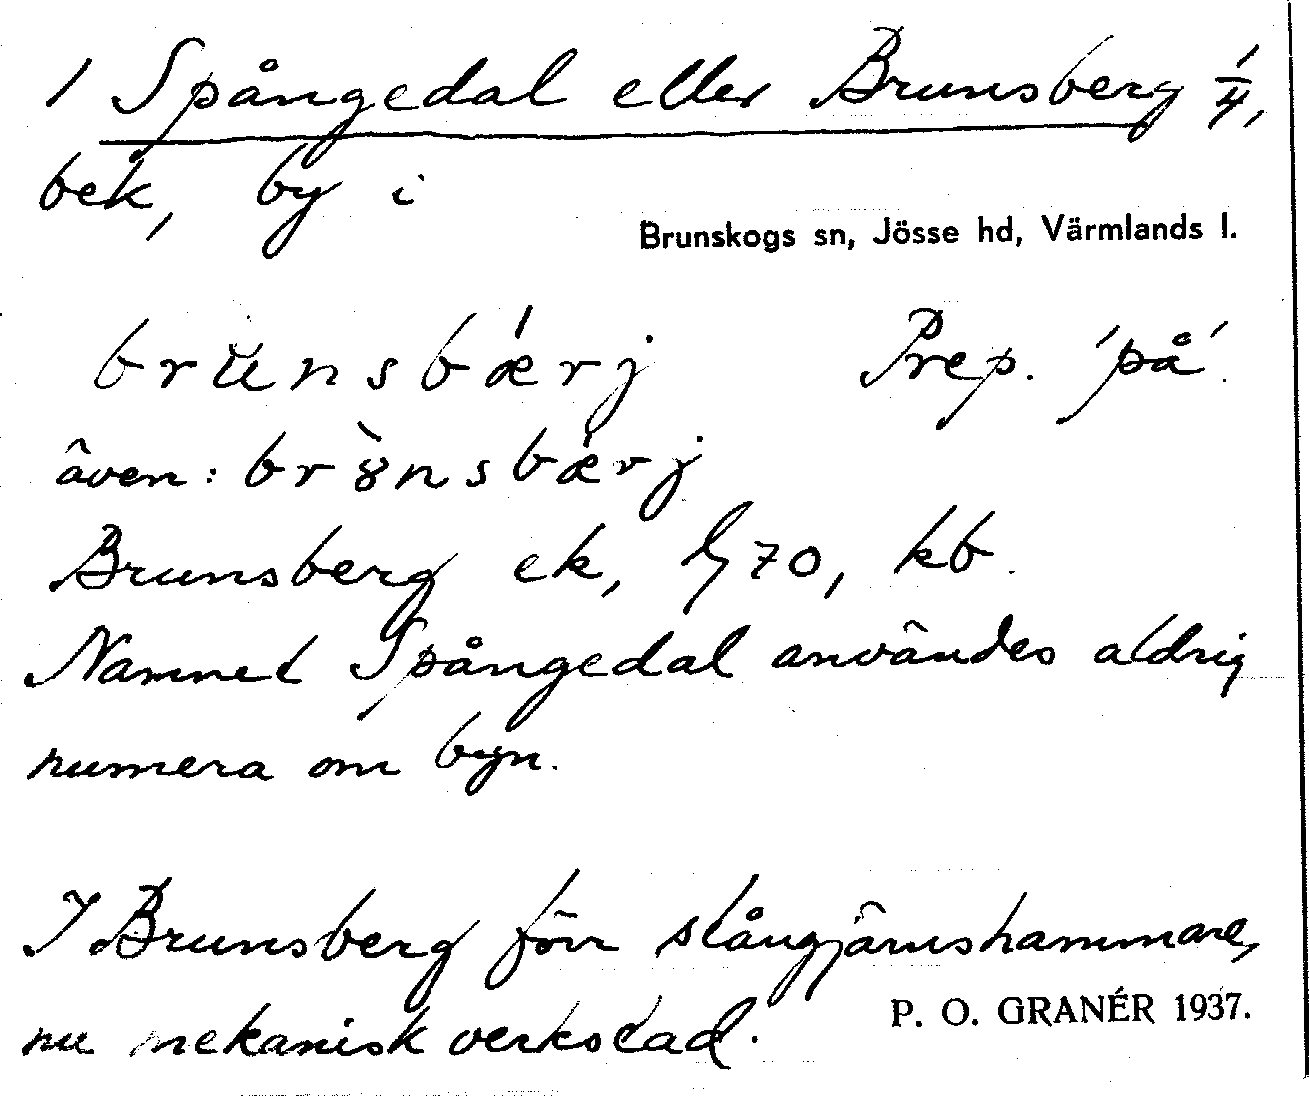 1 Spångedal eller Brunsberg 1/4,
bek, by i
Brunskogs sn, Jösse hd, Värmlands l.
brunsbærj Prep. 'på'.
även: brȣnsbærj
Brunsberg ek, G 70, kb.
Namnet Spångedal användes aldrig
numera om byn.
I Brunsberg förr stångjärnshammare,
nu mekanisk verkstad.
P. O. GRANÉR 1937.